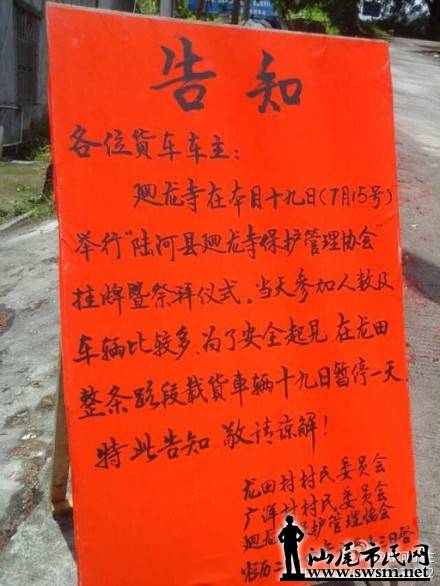 告知
各位货车车主：
廻龙寺在本月十九日(7月15号)
举行"陆河县廻龙寺保护管理协会"
挂牌暨祭拜仪式。当天参加人数及
车辆比较多、为了安全起见、在龙田
整条路段载货車辆十九日暂停一天.
特此告知、敬请谅解！
龙田村村民委员会
广洋村村民委员会
廻龙 保护管理协会
农历二
汕尾市民网
www.swsm.net